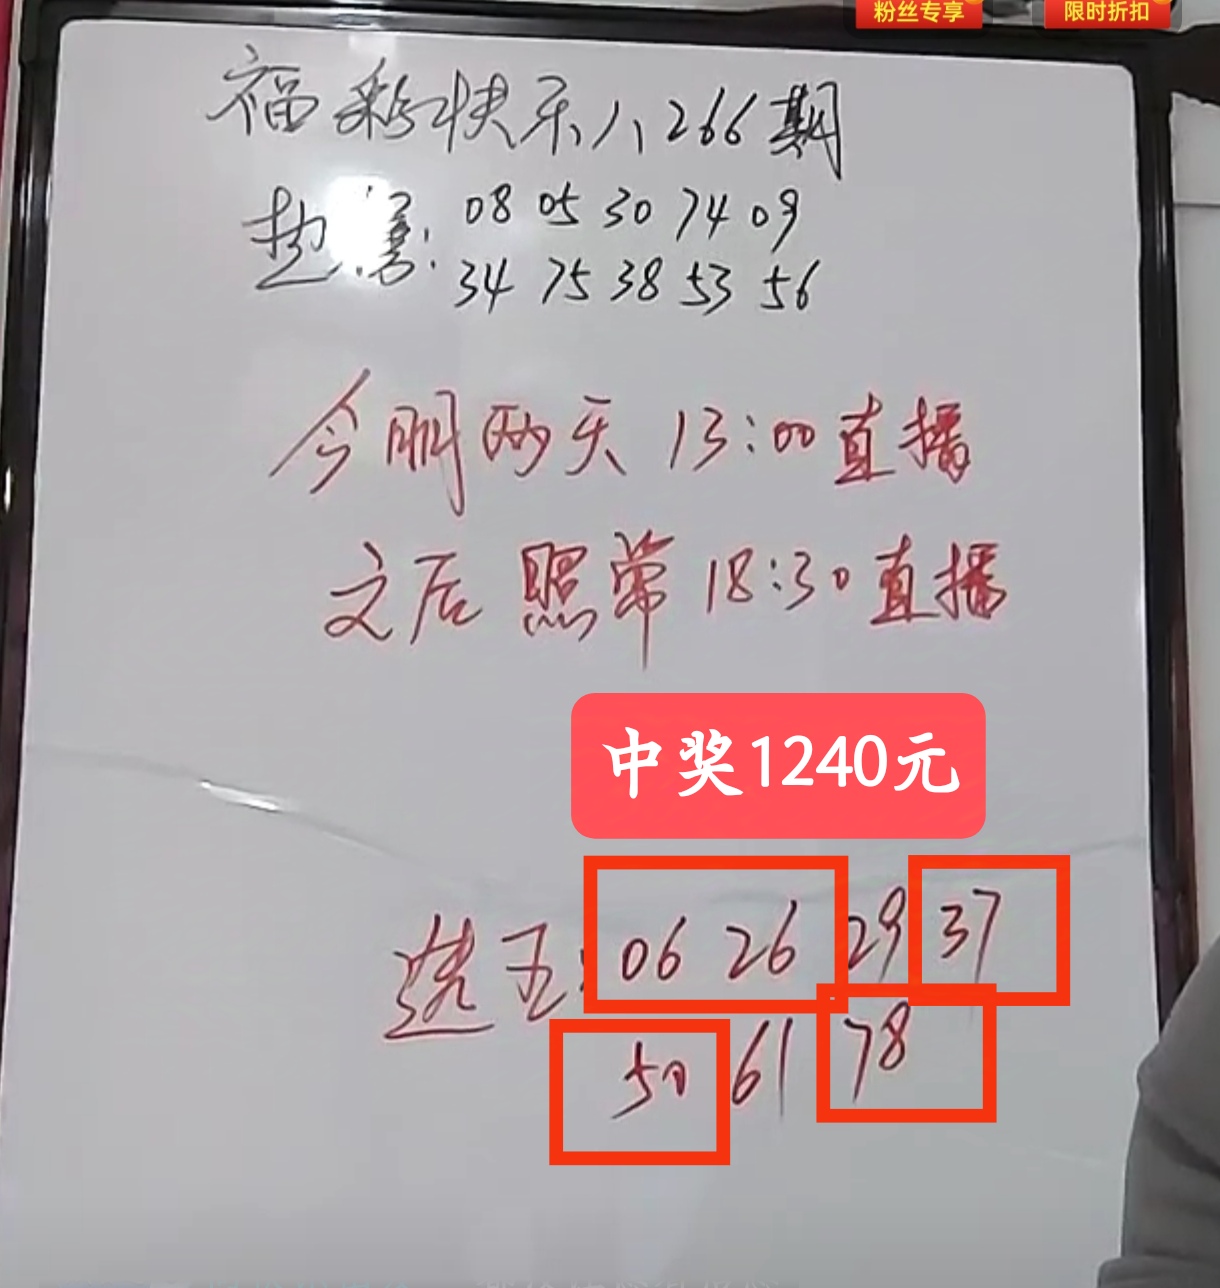 粉丝专享 限时折扣
福彩快乐八266期
热 : 08 05 30 74 09
34 75 38 53 56
今明两天 13:00直播
文后 照常 18:30直播
中奖1240元
选五: 06 26 29 37
50 61 78